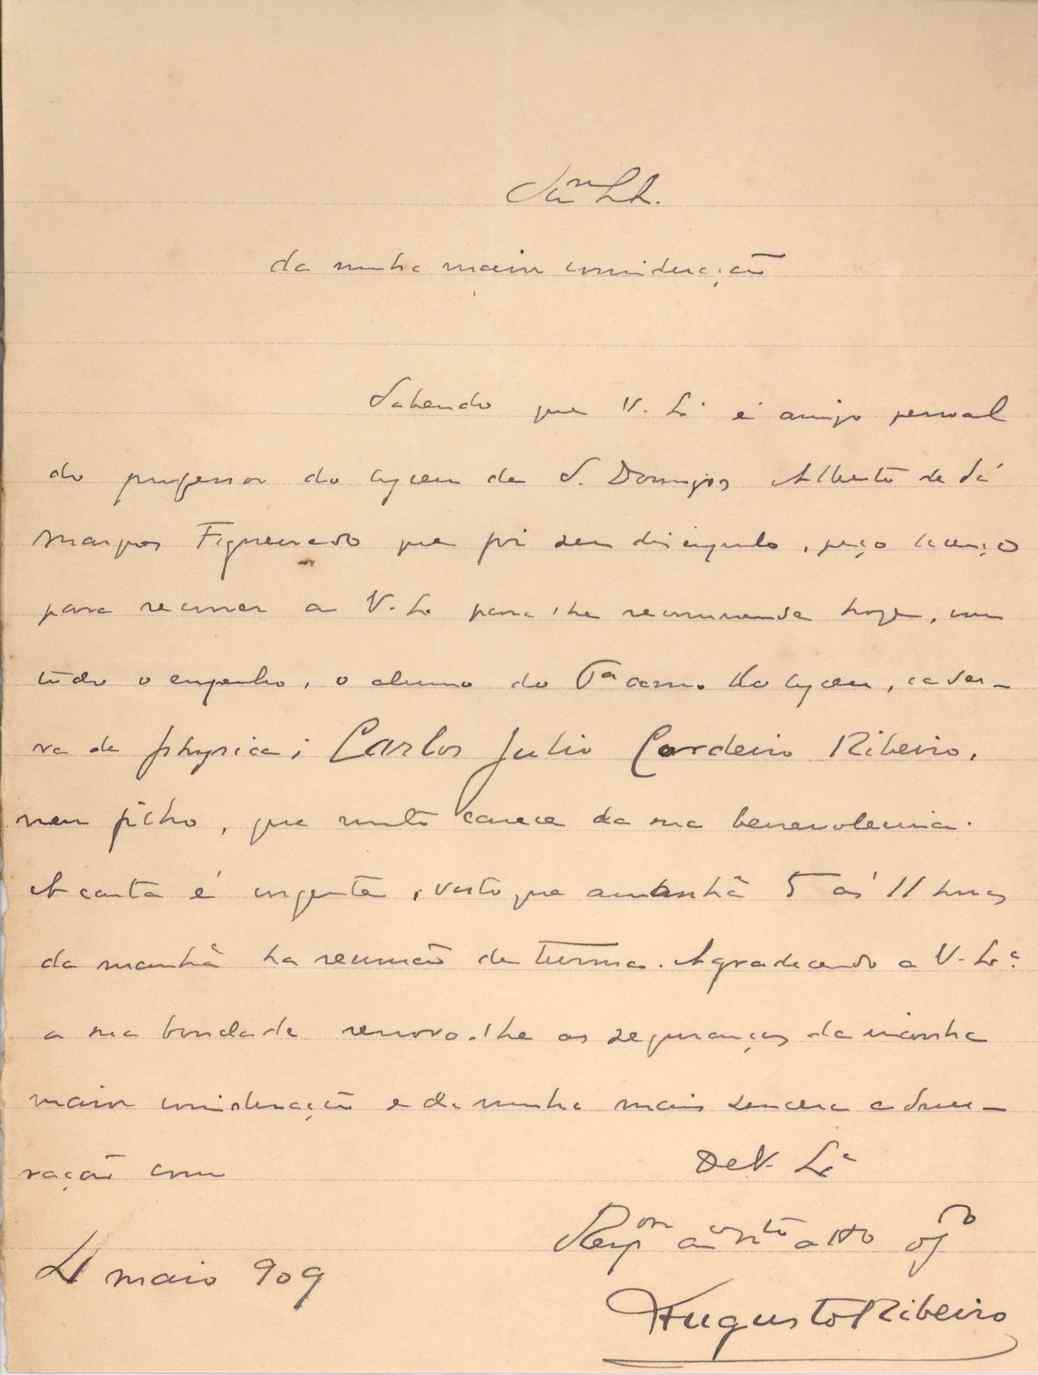 da minha maior consideração
Sabendo que V. Ex.ª é amigo pessoal
do professor do lyceu de S. Domingos Alberto de Sá
Marques Figueiredo que foi seu discipulo, peço licença
para recorrer a V. Ex.ª para lhe recommendar hoje, com
todo o empenho, o alumno do 6º anno do lyceu,
va de physica; Carlos Julio Cordeiro Ribeiro,
meu filho, que muito carece da sua benevolencia.
A carta é urgente, visto que amanhã 5 ás 11 horas
da manhã ha reunião de turma. Agradecendo a V. Ex.ª
a sua bondade renovo-lhe as seguranças da minha
maior consideração e da minha mais sincera admi-
ração com
De V. Ex.ª
4 maio 909
Augusto Ribeiro